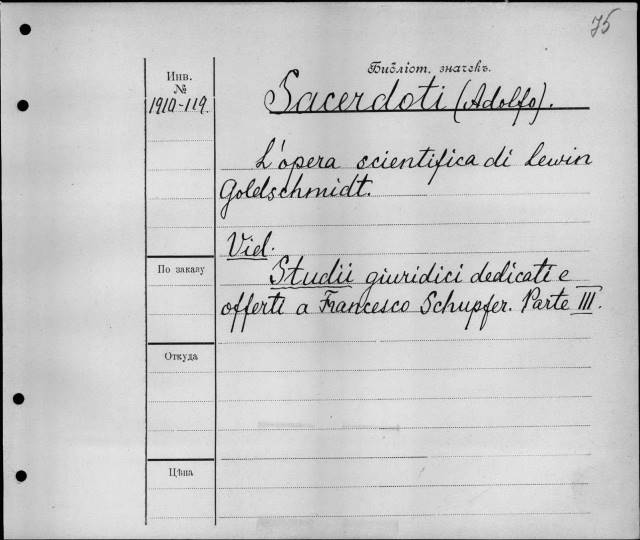 75
Инв.
№
1910-119.
Библіот. значекъ.
Sacerdoti (Adolfo).
L'opera scientifica di Lewin
Goldschmidt.
Vid.
Studii giuridici dedicati e
offerti a Francesco Schupfer. Parte III.
По заказу
Откуда
Цѣна